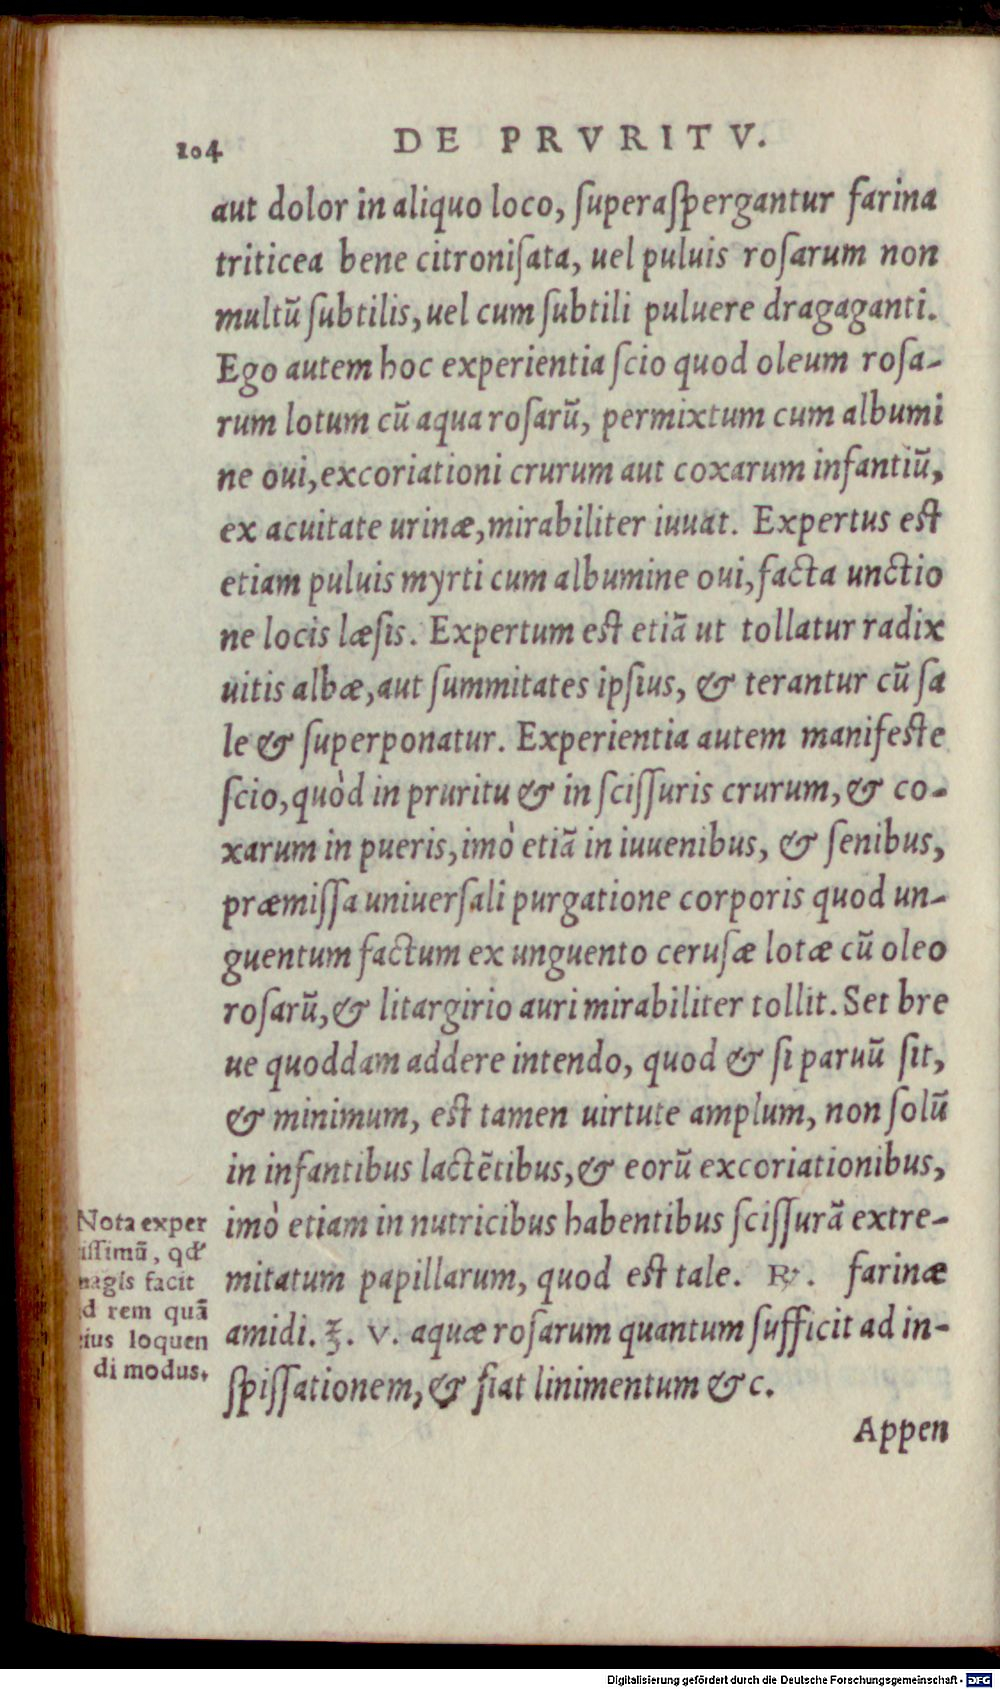 104
DE PRVRITV.
aut dolor in aliquo loco, ſuperaſpergantur farina
triticea bene citroniſata, uel puluis roſarum non
multũ ſubtilis, uel cum ſubtili puluere dragaganti.
Ego autem hoc experientia ſcio quod oleum roſa-
rum lotum cũ aqua roſarũ, permixtum cum albumi
ne oui, excoriationi crurum aut coxarum infantiũ,
ex acuitate urinæ, mirabiliter iuuat. Expertus est
etiam puluis myrti cum albumine oui, facta unctio
ne locis læſis. Expertum est etiã ut tollatur radix
uitis albæ, aut ſummitates ipſius, & terantur cũ ſa
le & ſuperponatur. Experientia autem manifeste
ſcio, quòd in pruritu & in ſciſſuris crurum, & co-
xarum in pueris, imò etiã in iuuenibus, & ſenibus,
præmiſſa uniuerſali purgatione corporis quod un-
guentum factum ex unguento ceruſæ lotæ cũ oleo
roſarũ, & litargirio auri mirabiliter tollit. Set bre
ue quoddam addere intendo, quod & ſi paruũ ſit,
& minimum, est tamen uirtute amplum, non ſolũ
in infantibus lactẽtibus, & eorũ excoriationibus,
imò etiam in nutricibus habentibus ſciſſurã extre-
mitatum papillarum, quod est tale. ℞. farinæ
amidi. ℥. v. aquæ roſarum quantum ſufficit ad in-
ſpiſſationem, & fiat linimentum & c.
Appen
Nota exper
iſſimũ, qđ
magis facit
d rem quã
eius loquen
di modus.
Digitalisierung gefördert durch die Deutsche Forschungsgemeinschaft - DFG